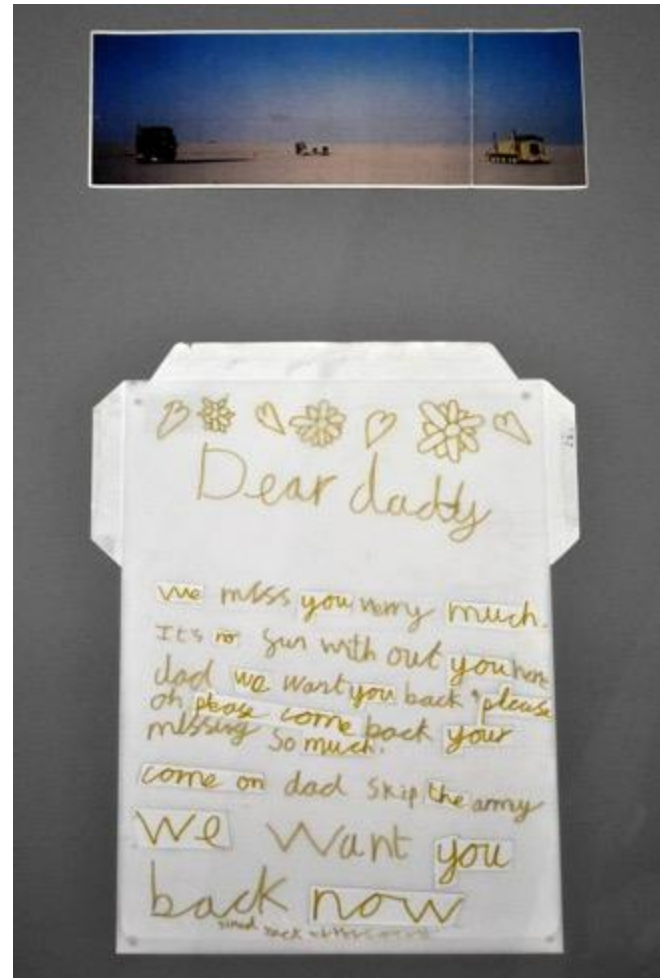 Dear daddy
we miss you verry much.
It's no fun with out you here
dad we want you back please
oh please come back your
missing so much.
come on dad skip the army
We want you
back now